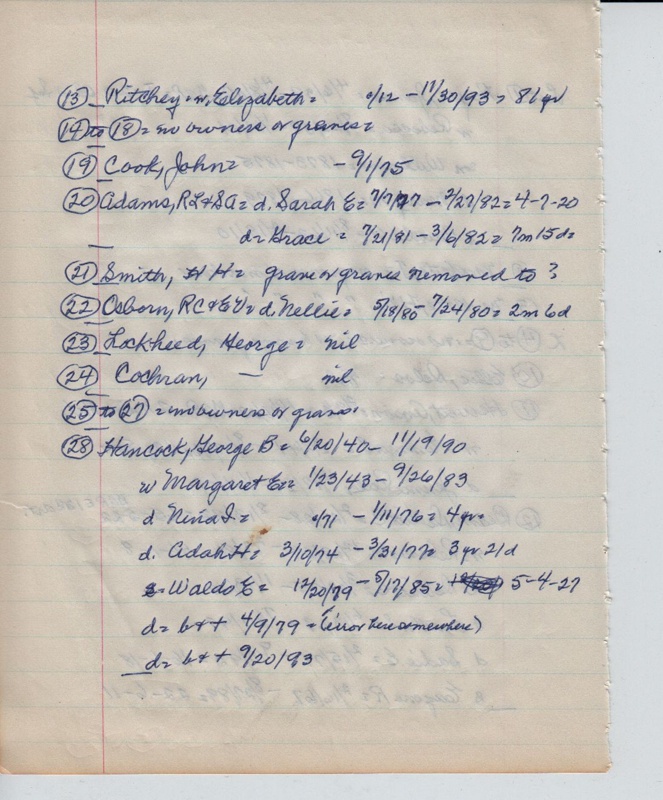 (13) Ritchey = w, Elizabeth = 0/12 - 11/30/93 = 81 yr
(14) to (18) = no owners or graves =
(19) Cook, John = - 9/1/75
(20) Adams, RL & SA = d. Sarah E = 7/7/77 - 2/27/82 = 4-7-20
d = Grace = 7/21/81 - 3/6/82 = 7m 15d =
(21) Smith, H H = grave or graves removed to ?
(22) Osborn, RC & EV = d. Nellie = 5/18/80 - 7/24/80 = 2m 6d
(23) Lockheed, George = nil
(24) Cochran, — nil
(25) to (27) = no owners or graves
(28) Hancock, George B = 6/20/40 - 11/19/90
w Margaret E = 1/23/43 - 9/26/83
d Nina I = 0/71 - 1/11/76 = 4 yr =
d. Adah H = 3/10/74 - 3/31/77 = 3 yr 21 d
s = Waldo E = 12/20/79 - 5/17/85 = 5-4-27
d = b + t 4/9/79 = (error here somewhere)
d = b + t 9/20/93